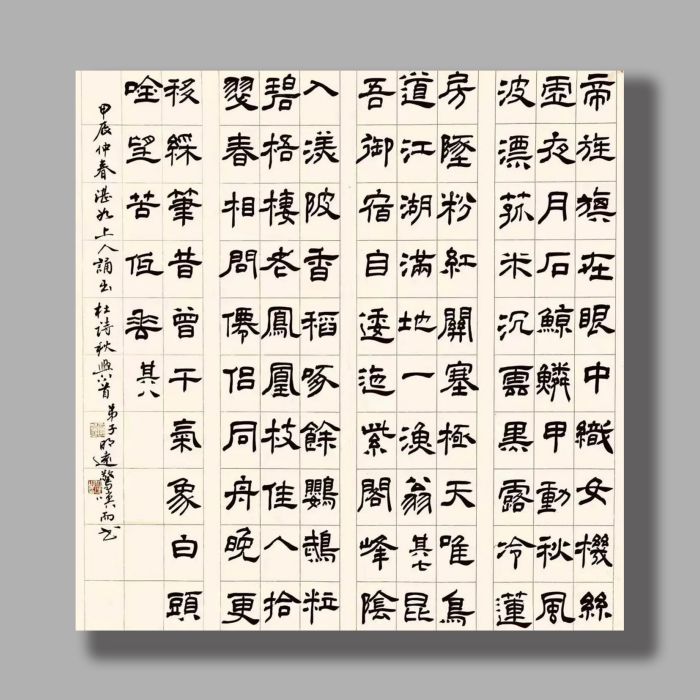 帝旌旗在眼中織女機絲
虛夜月石鯨鱗甲動秋風
波漂菰米沉雲黑露冷蓮
房墜粉紅關塞極天唯鳥
道江湖滿地一漁翁其七昆
吾御宿自逶迤紫閣峰陰
入渼陂香稻啄餘鸚鵡粒
碧梧棲老鳳凰枝佳人拾
翠春相問僊侶同舟晚更
移綵筆昔曾干氣象白頭
吟望苦低垂其八
甲辰仲春湛如上人誦出杜詩秋興八首弟子明遠驚嘆而書